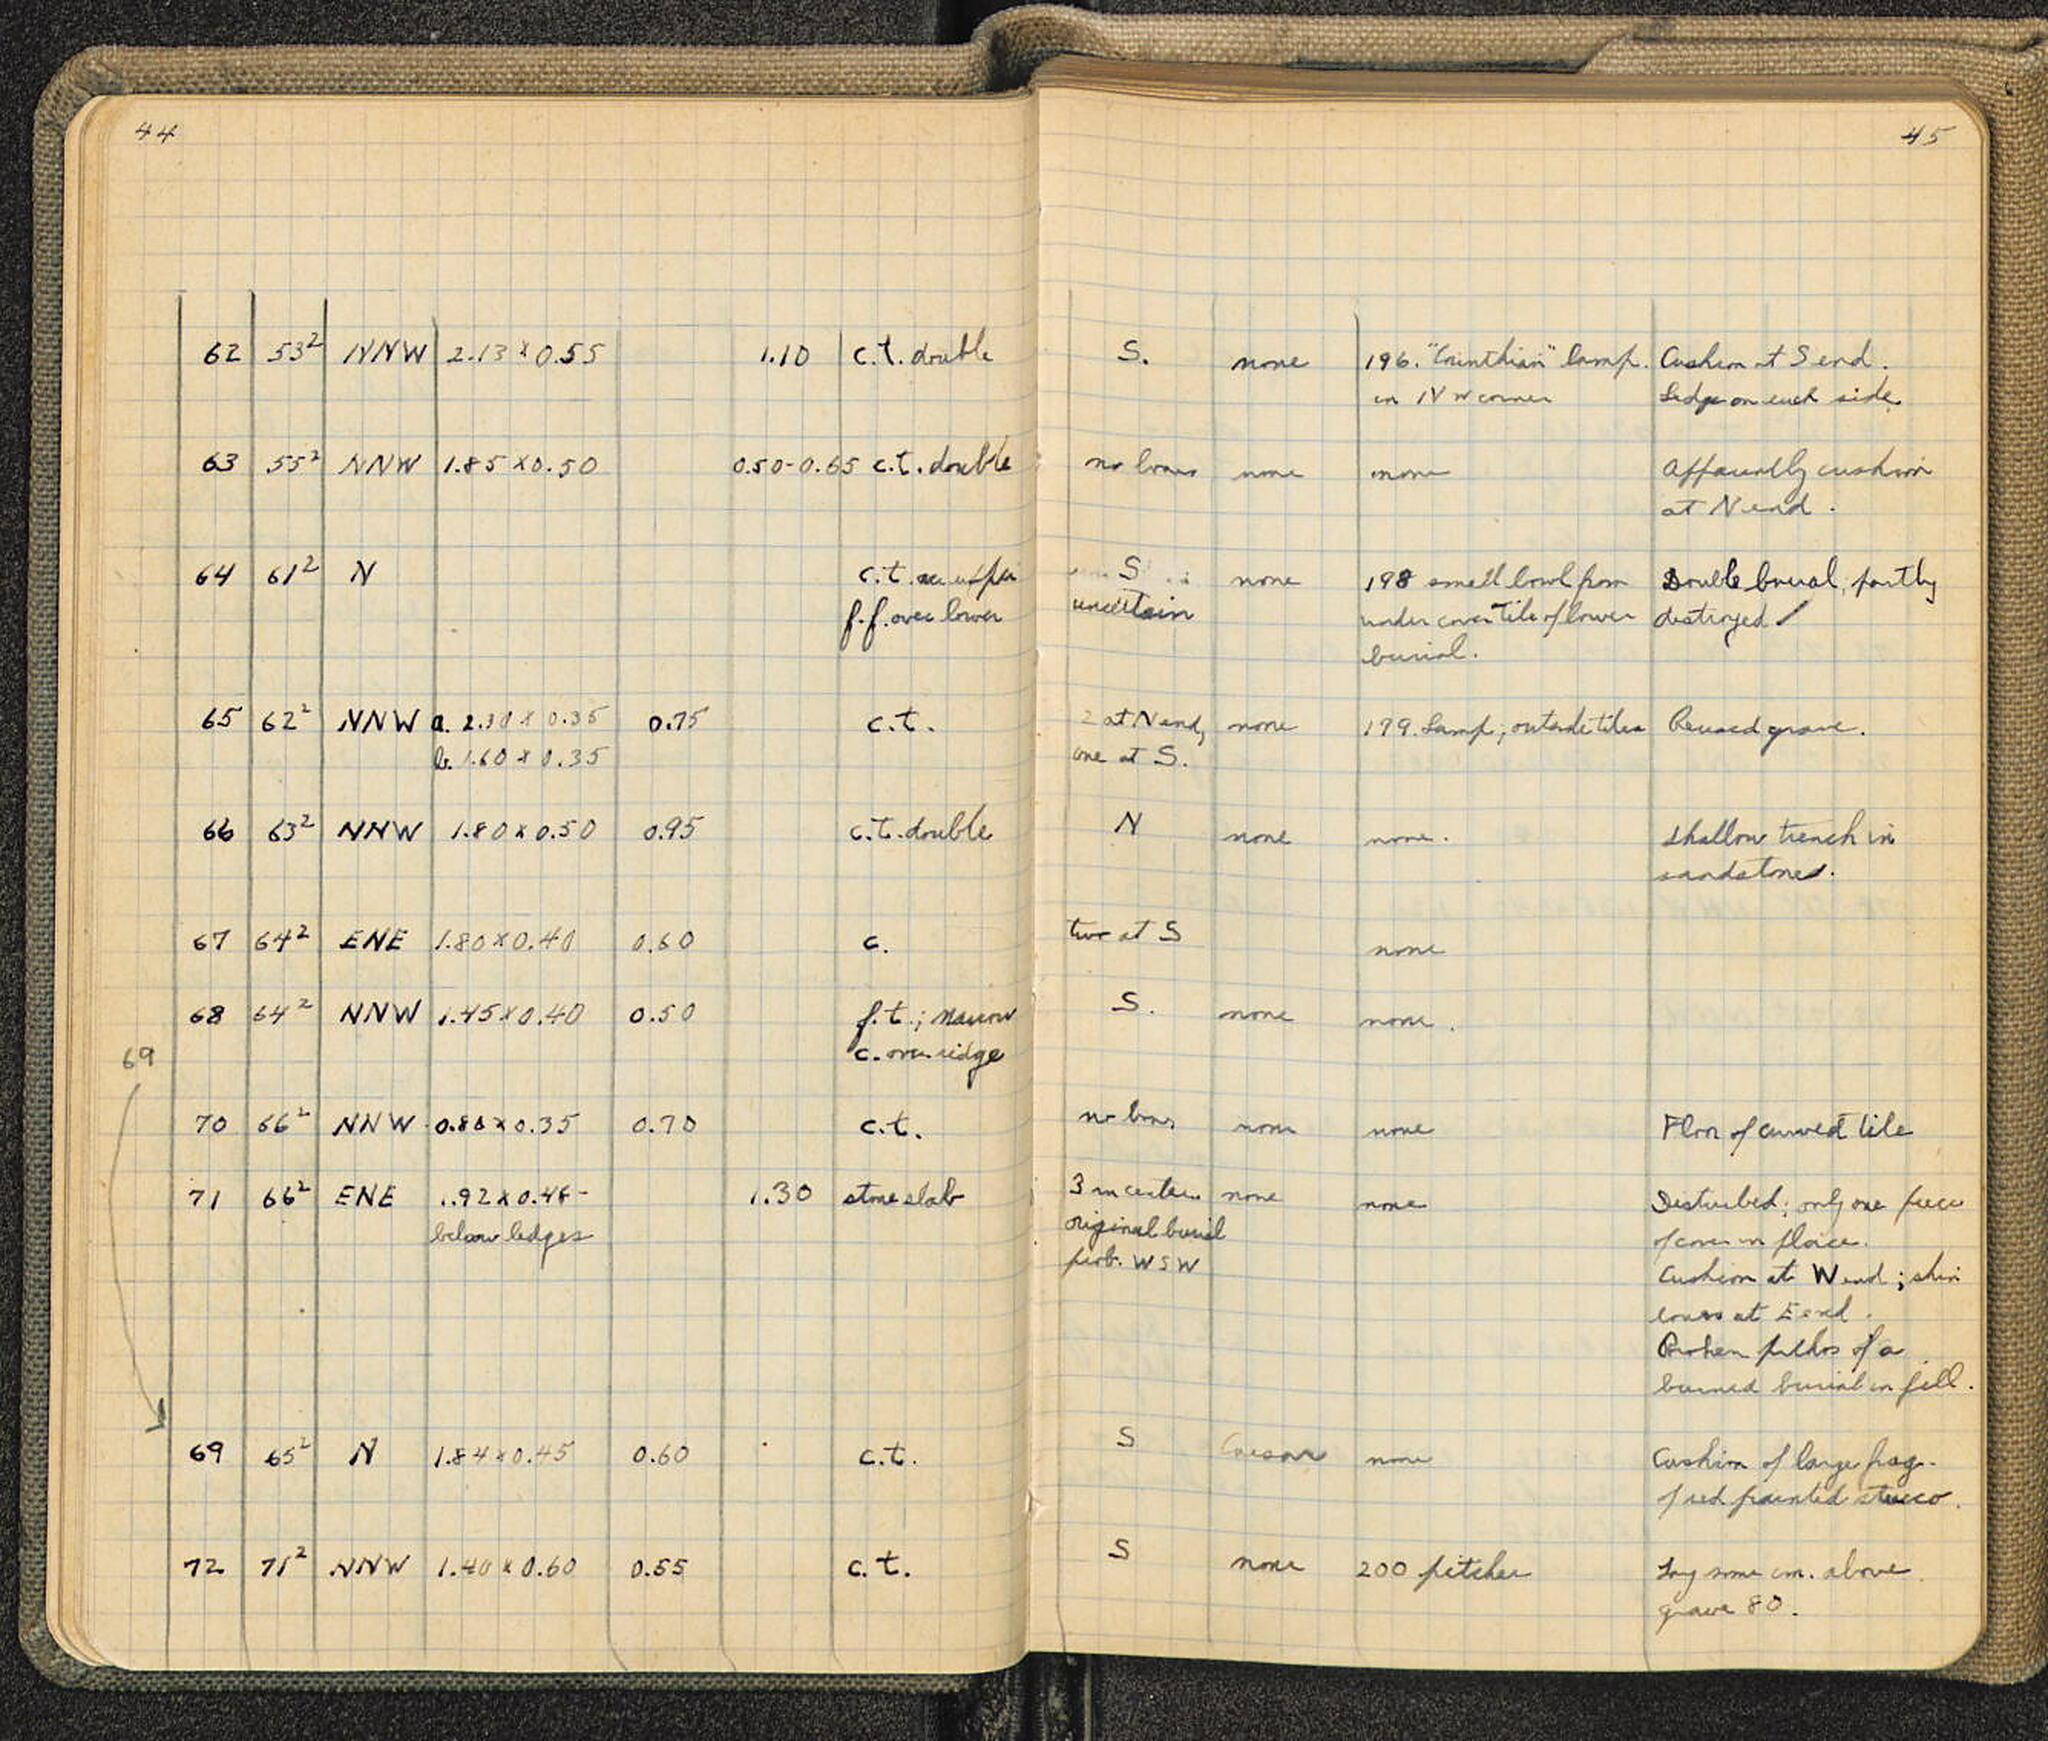 44
45
62 53² NNW 2.13 x 0.55 1.10 c.t. double S. none 196. "Corinthian" lamp. Cushion at S end.
in NW corner Ledge on each side
63 55² NNW 1.85 x 0.50 0.50-0.65 c.t. double no bones none none Apparently cushion
at N end.
64 61² N c.t. over upper S none 198 small bowl from Double burial, partly
f.f. over lower uncertain under cover tile of lower destroyed
burial.
65 62² NNW a. 2.30 x 0.35 0.75 c.t. 2 at N end, none 199. Lamp; outside tiles Reused grave.
b. 1.60 x 0.35 one at S.
66 63² NNW 1.80 x 0.50 0.95 c.t. double N none none. Shallow trench in
sandstone.
67 64² ENE 1.80 x 0.40 0.60 c. two at S none
68 64² NNW 1.45 x 0.40 0.50 f.t.; narrow S. none none.
69 c. over ridge
70 66² NNW 0.80 x 0.35 0.70 c.t. no bones none none Floor of curved tile
71 66² ENE 1.92 x 0.48- 1.30 stone slab 3 in center none none Disturbed; only one piece
below ledges original burial of cover in place.
prob. WSW Cushion at W end; shin
bones at E end.
Broken pithos of a
burned burial in fill.
69 65² N 1.84 x 0.45 0.60 c.t. S none Cushion of large frag.
of red painted stucco.
72 71² NNW 1.40 x 0.60 0.55 c.t. S none 200 pitcher Lay some cm. above
grave 80.